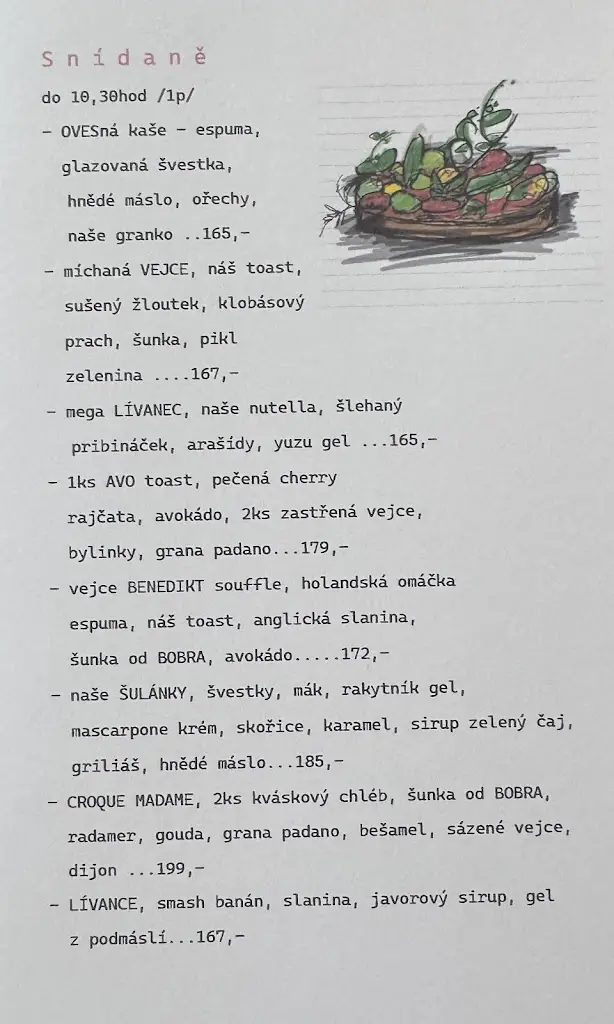 Snídaně
do 10,30hod /1p/
- OVESná kaše - espuma,
glazovaná švestka,
hnědé máslo, ořechy,
naše granko ..165,-
- míchaná VEJCE, náš toast,
sušený žloutek, klobásový
prach, šunka, pikl
zelenina ....167,-
- mega LÍVANEC, naše nutella, šlehaný
pribináček, arašídy, yuzu gel ...165,-
- 1ks AVO toast, pečená cherry
rajčata, avokádo, 2ks zastřená vejce,
bylinky, grana padano...179,-
- vejce BENEDIKT souffle, holandská omáčka
espuma, náš toast, anglická slanina,
šunka od BOBRA, avokádo.....172,-
- naše ŠULÁNKY, švestky, mák, rakytník gel,
mascarpone krém, skořice, karamel, sirup zelený čaj,
griliáš, hnědé máslo...185,-
- CROQUE MADAME, 2ks kváskový chléb, šunka od BOBRA,
radamer, gouda, grana padano, bešamel, sázené vejce,
dijon ...199,-
- LÍVANCE, smash banán, slanina, javorový sirup, gel
z podmáslí...167,-